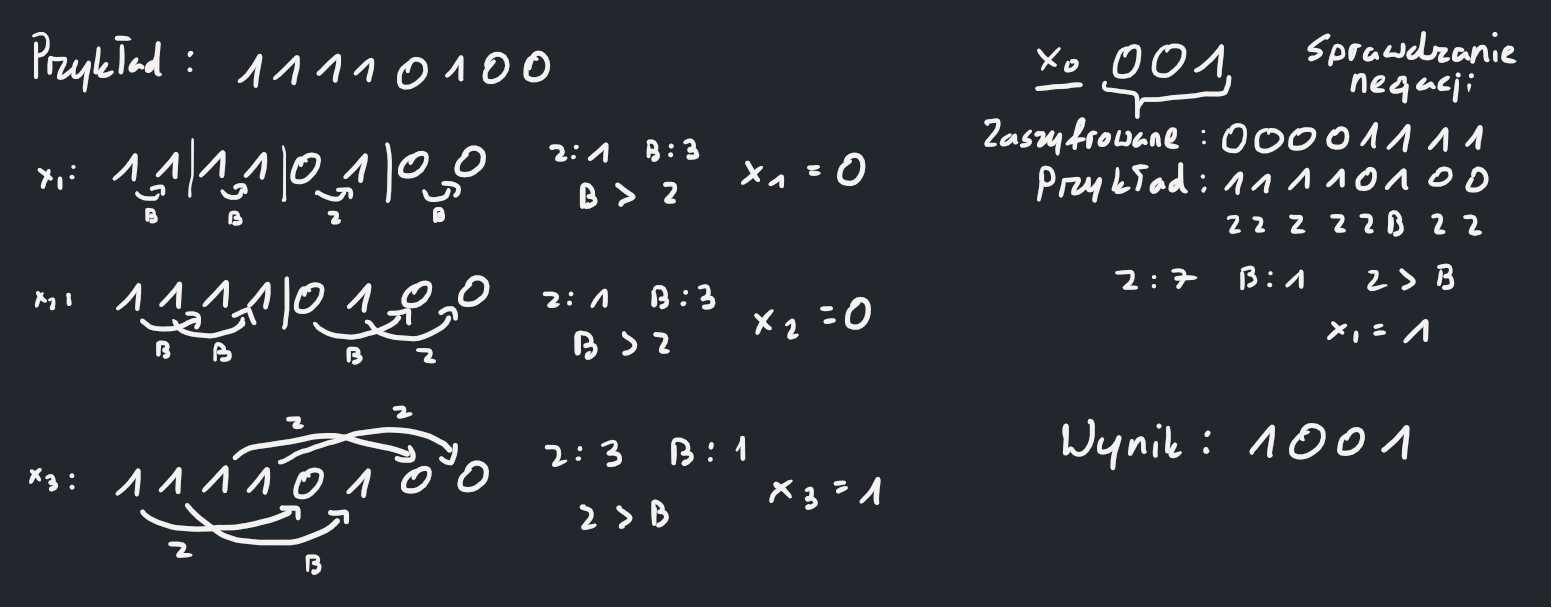 Przykład : 11110100
x₁: 11|11|01|00 z:1 B:3 x₁ = 0
B B z B B > z
x₂: 1111|0100 z:1 B:3 x₂ = 0
B B B z B > z
z z
x₃: 11110100 z:3 B:1 x₃ = 1
z B z > B
x₀ 001 Sprawdzanie
negacji
Zaszyfrowane : 00001111
Przykład : 11110100
z z z z z B z z
z:7 B:1 z > B
x₁ = 1
Wynik : 1001